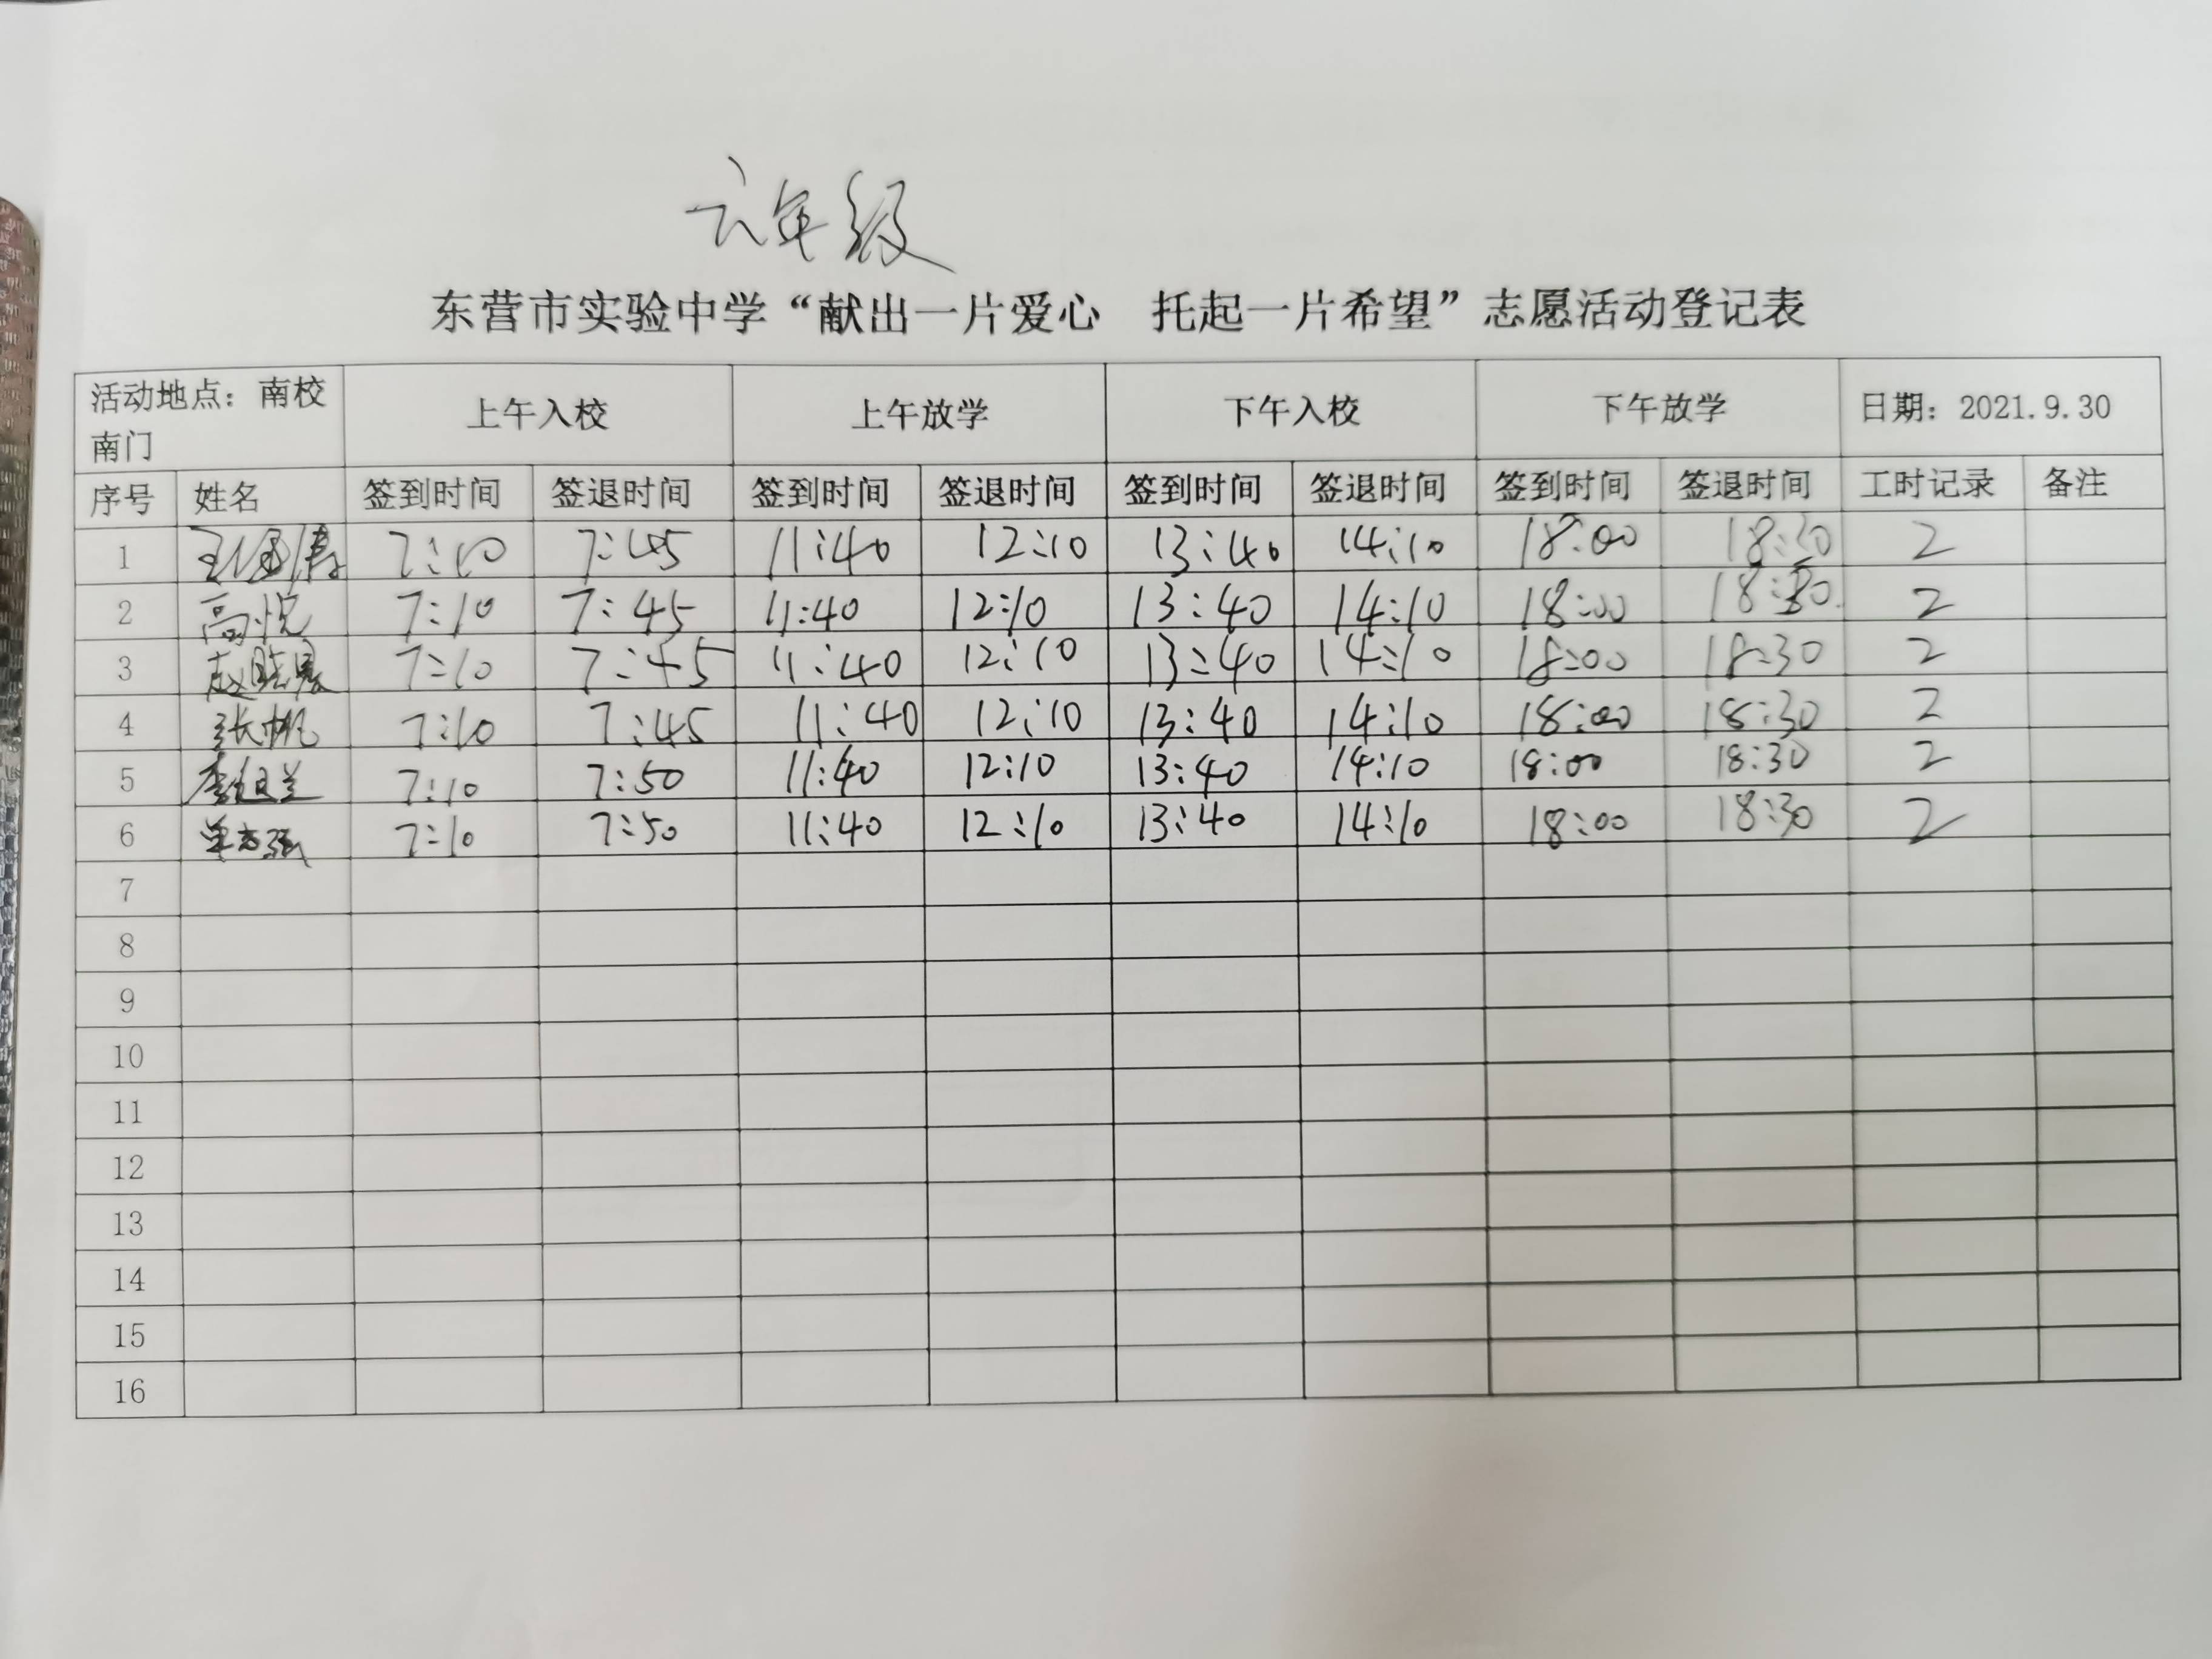 六年级
东营市实验中学“献出一片爱心 托起一片希望”志愿活动登记表
活动地点：南校南门 上午入校 上午放学 下午入校 下午放学 日期：2021.9.30
序号 姓名 签到时间 签退时间 签到时间 签退时间 签到时间 签退时间 签到时间 签退时间 工时记录 备注
1 7:10 7:45 11:40 12:10 13:40 14:10 18:00 18:30 2
2 高悦 7:10 7:45 11:40 12:10 13:40 14:10 18:00 18:30 2
3 7:10 7:45 11:40 12:10 13:40 14:10 18:00 18:30 2
4 张帆 7:10 7:45 11:40 12:10 13:40 14:10 18:00 18:30 2
5 7:10 7:50 11:40 12:10 13:40 14:10 18:00 18:30 2
6 7:10 7:50 11:40 12:10 13:40 14:10 18:00 18:30 2
7
8
9
10
11
12
13
14
15
16